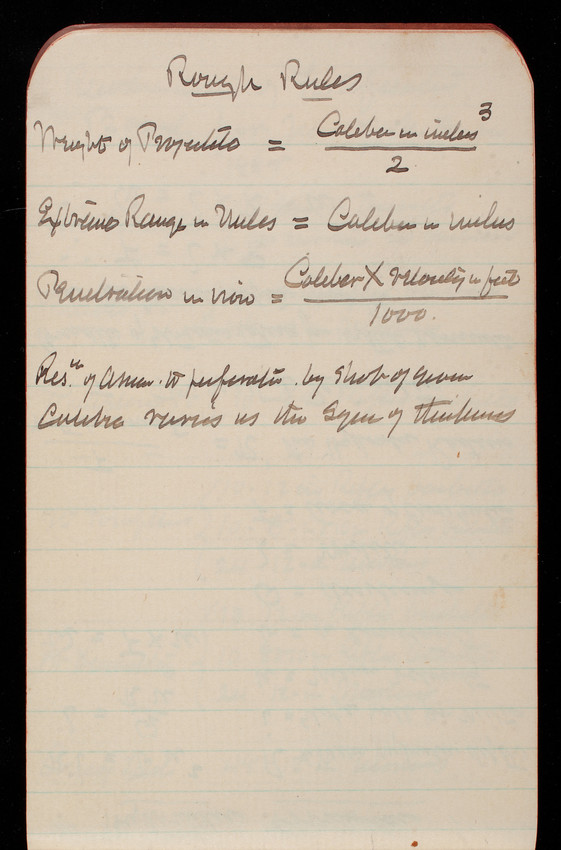 Rough Rules
Weight of Projectile = Caliber in inches³
2
Extreme Range in Miles = Caliber in inches
Penetration in iron = Caliber X velocity in feet
1000.
Res.ⁿ of Armor to perforation by Shot of given
Calibre varies as the Sqre of thickness